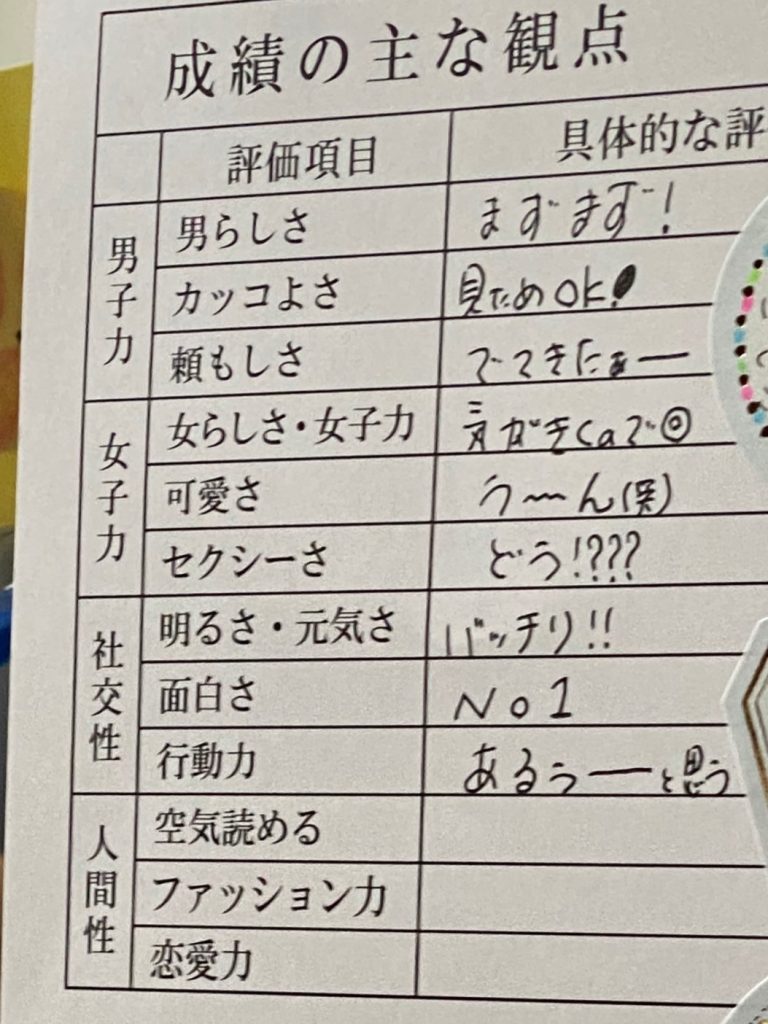 成績の主な観点
評価項目 具体的な評
男子力
男らしさ まずまず!
カッコよさ 見ためOK!
頼もしさ でてきたぁー
女子力
女らしさ・女子力 気がきCaで◎
可愛さ う〜ん(笑)
セクシーさ どう!????
社交性
明るさ・元気さ バッチリ!!
面白さ No1
行動力 あるぅーと思う
人間性
空気読める
ファッション力
恋愛力